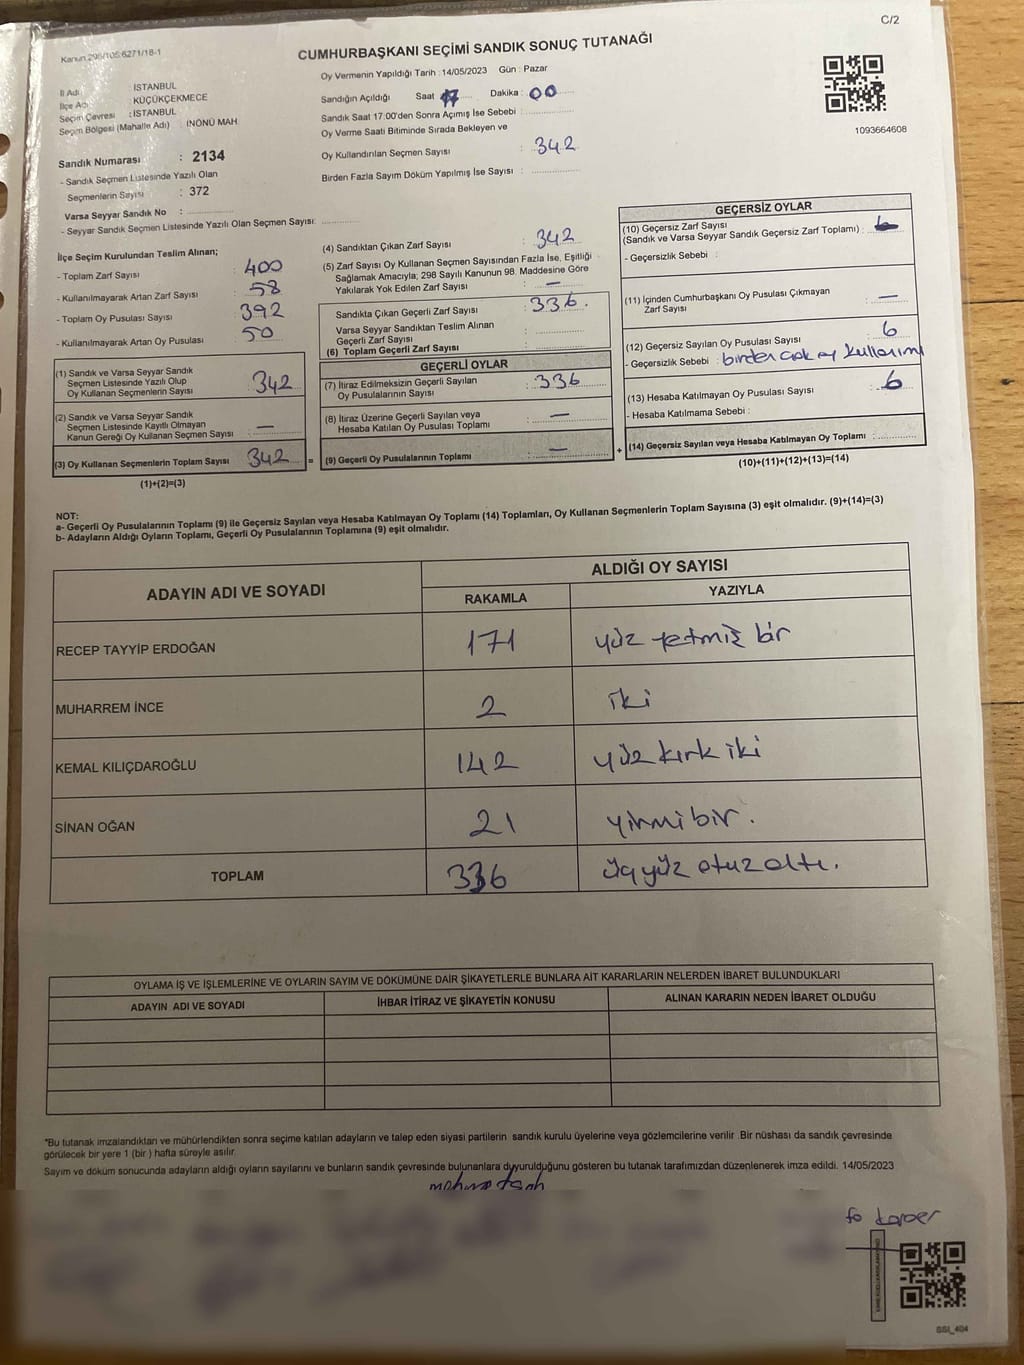 C/2
Kanun 298/105:6271/18-1
CUMHURBAŞKANI SEÇİMİ SANDIK SONUÇ TUTANAĞI
Oy Vermenin Yapıldığı Tarih :14/05/2023 Gün : Pazar
İl Adı : İSTANBUL
İlçe Adı : KÜÇÜKÇEKMECE
Seçim Çevresi : İSTANBUL
Seçim Bölgesi (Mahalle Adı) : İNÖNÜ MAH
Sandık Numarası : 2134
- Sandık Seçmen Listesinde Yazılı Olan
Seçmenlerin Sayısı : 372
Varsa Seyyar Sandık No :
- Seyyar Sandık Seçmen Listesinde Yazılı Olan Seçmen Sayısı:
Sandığın Açıldığı Saat 17 Dakika : 00
Sandık Saat 17.00'den Sonra Açımış İse Sebebi :
Oy Verme Saati Bitiminde Sırada Bekleyen ve
Oy Kullandırılan Seçmen Sayısı : 342
Birden Fazla Sayım Döküm Yapılmış İse Sayısı :
1093664608
İlçe Seçim Kurulundan Teslim Alınan;
- Toplam Zarf Sayısı : 400
- Kullanılmayarak Artan Zarf Sayısı : 58
- Toplam Oy Pusulası Sayısı : 392
- Kullanılmayarak Artan Oy Pusulası : 50
(1) Sandık ve Varsa Seyyar Sandık
Seçmen Listesinde Yazılı Olup
Oy Kullanan Seçmenlerin Sayısı : 342
(2) Sandık ve Varsa Seyyar Sandık
Seçmen Listesinde Kayıtlı Olmayan
Kanun Gereği Oy Kullanan Seçmen Sayısı : —
(3) Oy Kullanan Seçmenlerin Toplam Sayısı 342
(1)+(2)=(3)
(4) Sandıktan Çıkan Zarf Sayısı : 342
(5) Zarf Sayısı Oy Kullanan Seçmen Sayısından Fazla İse, Eşitliği
Sağlamak Amacıyla; 298 Sayılı Kanunun 98. Maddesine Göre
Yakılarak Yok Edilen Zarf Sayısı : —
Sandıkta Çıkan Geçerli Zarf Sayısı : 336.
Varsa Seyyar Sandıktan Teslim Alınan
Geçerli Zarf Sayısı :
(6) Toplam Geçerli Zarf Sayısı :
GEÇERLİ OYLAR
(7) İtiraz Edilmeksizin Geçerli Sayılan
Oy Pusulalarının Sayısı : 336
(8) İtiraz Üzerine Geçerli Sayılan veya
Hesaba Katılan Oy Pusulası Toplamı : —
= (9) Geçerli Oy Pusulalarının Toplamı : —
GEÇERSİZ OYLAR
(10) Geçersiz Zarf Sayısı
(Sandık ve Varsa Seyyar Sandık Geçersiz Zarf Toplamı) :
- Geçersizlik Sebebi :
(11) İçinden Cumhurbaşkanı Oy Pusulası Çıkmayan
Zarf Sayısı : —
(12) Geçersiz Sayılan Oy Pusulası Sayısı : 6
- Geçersizlik Sebebi : birden çok oy kullanımı
(13) Hesaba Katılmayan Oy Pusulası Sayısı : 6
- Hesaba Katılmama Sebebi :
+ (14) Geçersiz Sayılan veya Hesaba Katılmayan Oy Toplamı :
(10)+(11)+(12)+(13)=(14)
NOT:
a- Geçerli Oy Pusulalarının Toplamı (9) ile Geçersiz Sayılan veya Hesaba Katılmayan Oy Toplamı (14) Toplamları, Oy Kullanan Seçmenlerin Toplam Sayısına (3) eşit olmalıdır. (9)+(14)=(3)
b- Adayların Aldığı Oyların Toplamı, Geçerli Oy Pusulalarının Toplamına (9) eşit olmalıdır.
ADAYIN ADI VE SOYADI
ALDIĞI OY SAYISI
RAKAMLA YAZIYLA
RECEP TAYYİP ERDOĞAN 171 yüz yetmiş bir
MUHARREM İNCE 2 iki
KEMAL KILIÇDAROĞLU 142 yüz kırk iki
SİNAN OĞAN 21 yirmi bir.
TOPLAM 336 üçyüz otuz altı.
OYLAMA İŞ VE İŞLEMLERİNE VE OYLARIN SAYIM VE DÖKÜMÜNE DAİR ŞİKAYETLERLE BUNLARA AİT KARARLARIN NELERDEN İBARET BULUNDUKLARI
ADAYIN ADI VE SOYADI İHBAR İTİRAZ VE ŞİKAYETİN KONUSU ALINAN KARARIN NEDEN İBARET OLDUĞU
*Bu tutanak imzalandıktan ve mühürlendikten sonra seçime katılan adayların ve talep eden siyasi partilerin sandık kurulu üyelerine veya gözlemcilerine verilir. Bir nüshası da sandık çevresinde
görülecek bir yere 1 (bir) hafta süreyle asılır.
Sayım ve döküm sonucunda adayların aldığı oyların sayılarını ve bunların sandık çevresinde bulunanlara duyurulduğunu gösteren bu tutanak tarafımızdan düzenlenerek imza edildi. 14/05/2023
SSI_404